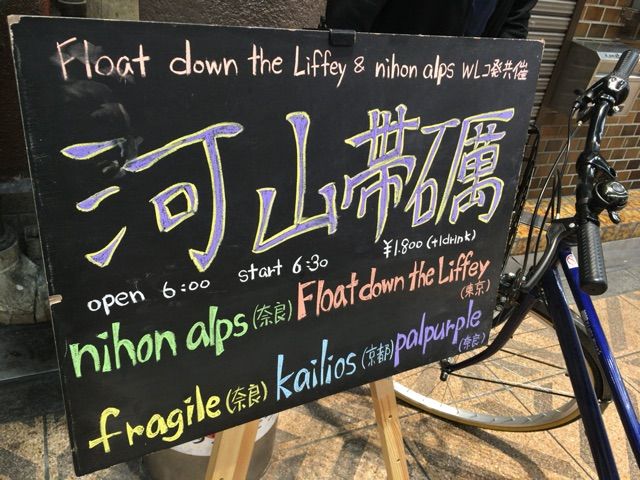 Float down the Liffey & nihon alps WLコ発共催
河山帯礪
open 6:00 start 6:30 ¥1.800 (+1drink)
nihon alps (奈良) Float down the Liffey (東京)
fragile (奈良) kailios (京都) palpurple (奈良)